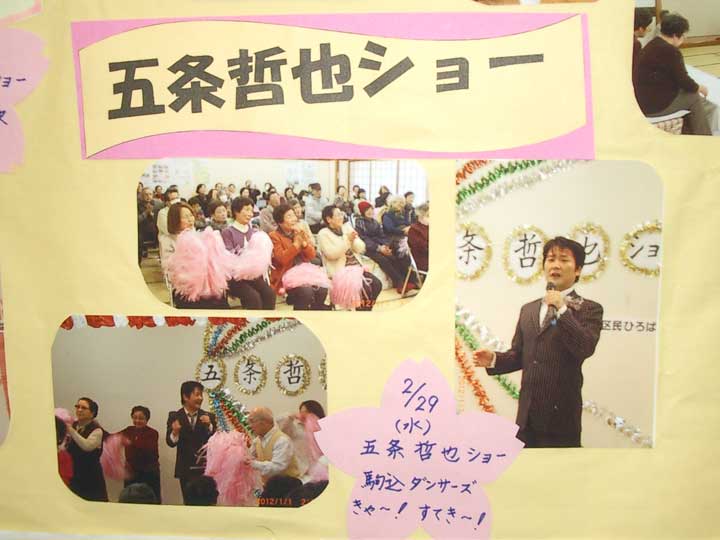 五条哲也ショー
ョー
条哲也ショ
区民ひろば
五条哲
2012/1/1
2/29
(水)
五条哲也ショー
駒込ダンサーズ
きゃ〜！すてき〜！